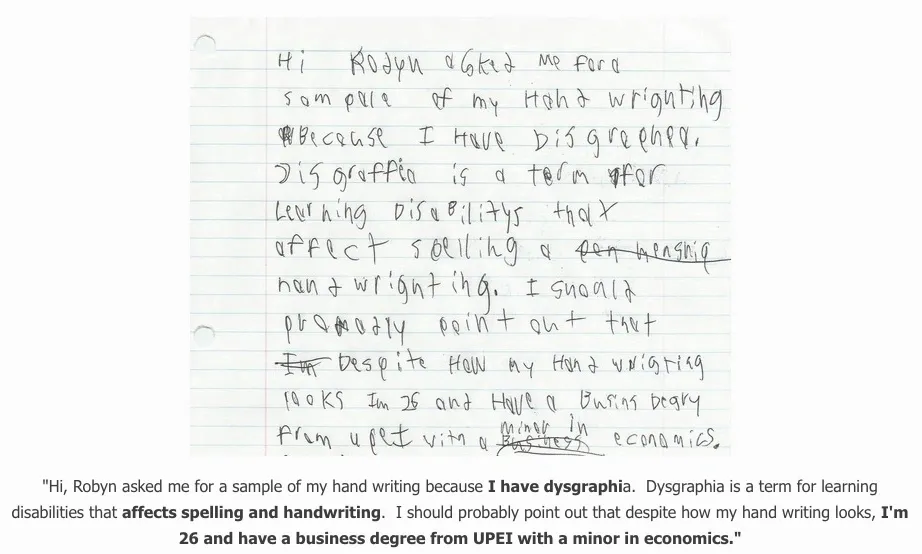 Hi Robyn asked me for a
sampule of my Hand wrighting
Because I Have Disgraphea.
Disgraffia is a term for
Learning Disabilitys that
affect spelling a pen menship
hand wrighting. I should
probobly point out that
Im Despite How my Hand wrigting
looks Im 26 and Have a Busins Degry
from upeI with a minor in economics.
Business
"Hi, Robyn asked me for a sample of my hand writing because I have dysgraphia. Dysgraphia is a term for learning
disabilities that affects spelling and handwriting. I should probably point out that despite how my hand writing looks, I'm
26 and have a business degree from UPEI with a minor in economics."